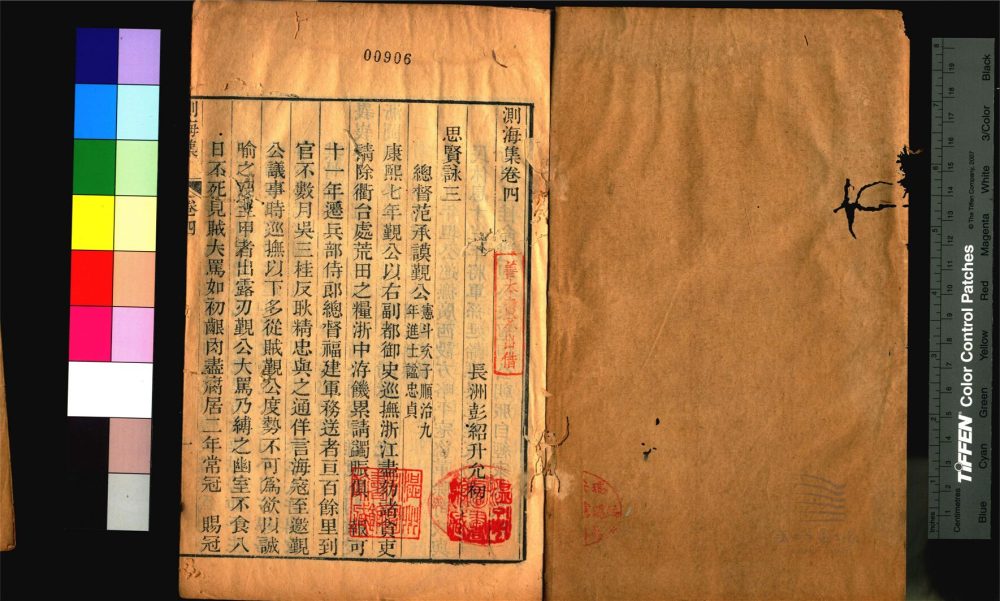 00906
測海集卷四
長洲彭紹升允初
思賢詠三
總督范承謨覲公 憲斗次子順治九年進士諡忠貞
康熙七年覲公以右副都御史巡撫浙江盡劾諸貪吏
請除衢台處荒田之糧浙中洊饑累請蠲賑俱 報可
十一年遷兵部侍郎總督福建軍務送者亘百餘里到
官不數月吳三桂反耿精忠與之通佯言海寇至邀覲
公議事時巡撫以下多從賊覲公度勢不可為欲以誠
喻之 甲者出露刃覲公大罵乃縛之幽室不食八
日不死見賊大罵如初齦肉盡腐居二年常冠 賜冠
測海集 卷四
TIFFEN Color Control Patches
© The Tiffen Company, 2007
Inches
Centimetres
Blue Cyan Green Yellow Red Magenta White 3/Color Black